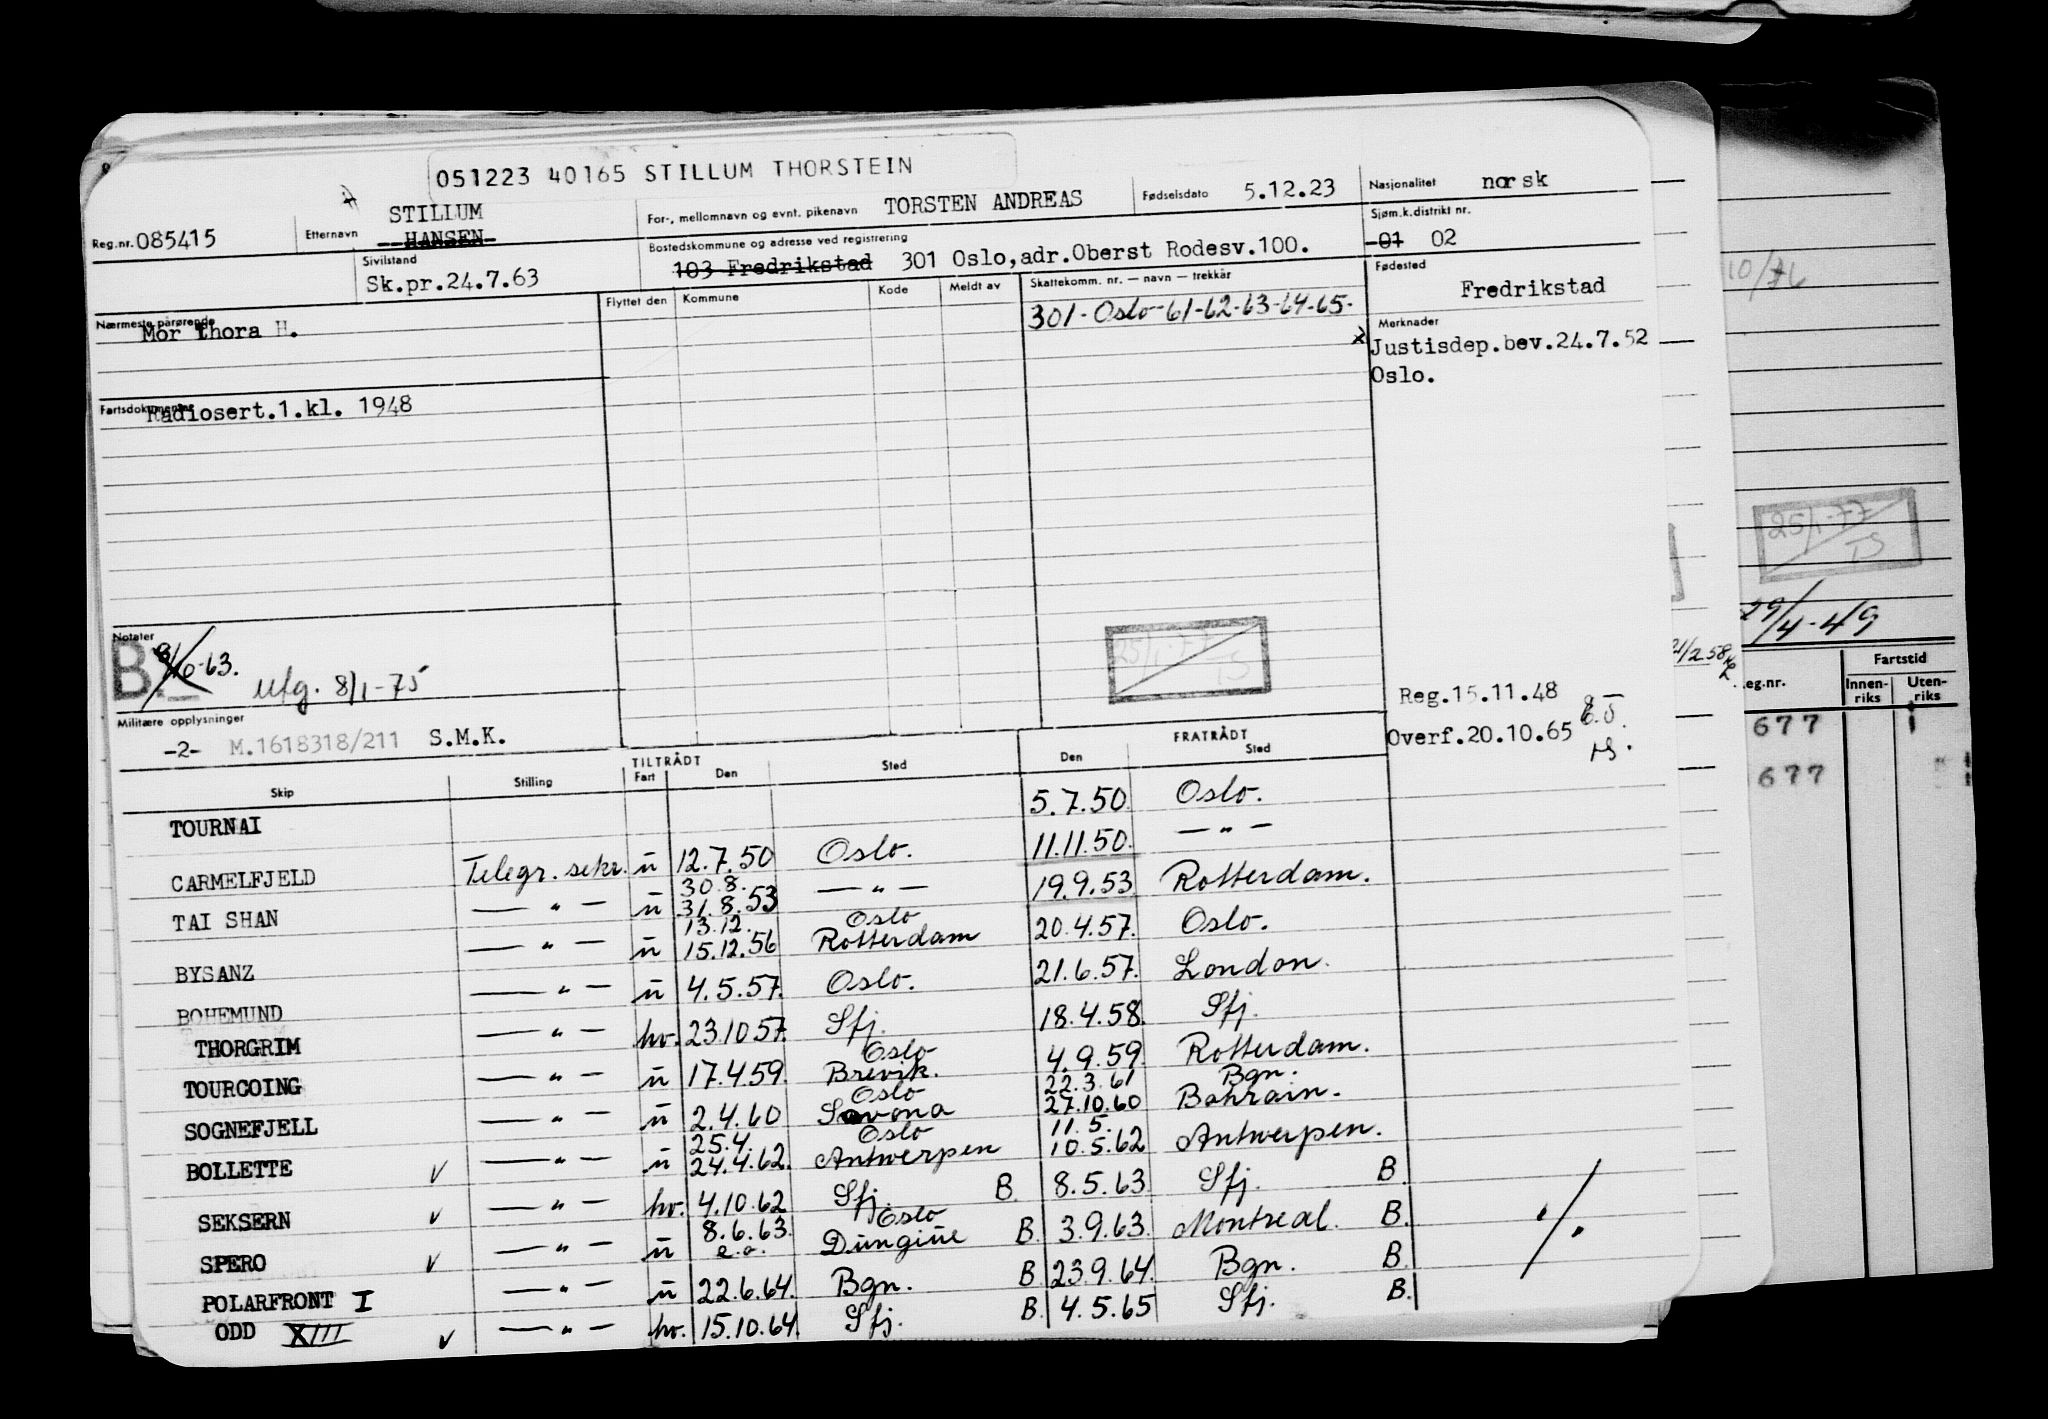 051223 40165 STILLUM THORSTEIN
Reg.nr. 085415
Etternavn STILLUM
HANSEN
For-, mellomnavn og evnt. pikenavn TORSTEN ANDREAS
Fødselsdato 5.12.23
Nasjonalitet norsk
Sivilstand
Sk.pr.24.7.63
Bostedskommune og adresse ved registrering
103 Fredrikstad 301 Oslo,adr.Oberst Rodesv.100.
Sjøm.k.distrikt nr.
01 02
Nærmeste pårørende
Mor thora H.
Flyttet den Kommune Kode Meldt av
Skattekomm. nr. — navn — trekkår
301-Oslo-61-62-63-64-65-
Fødested
Fredrikstad
Merknader
x Justisdep.bev.24.7.52
Oslo.
Fartsdokumenter
Radiosert.1.kl. 1948
10/76
25/1-77
TS
29/4-49
Notater
B. 8/10-63.
Utg. 8/1-75
25/1-77
TS
21/2.58
Reg.15.11.48
Overf.20.10.65
Militære opplysninger
-2- M.1618318/211 S.M.K.
Reg.nr. Fartstid
Innen-riks Uten-riks
677
677
TILTRÅDT FRATRÅDT
Skip Stilling Fart Den Sted Den Sted
TOURNAI 5.7.50 Oslo.
CARMELFJELD Telegr. sekr. u 12.7.50 Oslo. 11.11.50. — " —
TAI SHAN — " — u 30.8. 31.8.53 — " — 19.9.53 Rotterdam.
BYSANZ — " — u 13.12. 15.12.56 Oslo Rotterdam 20.4.57. Oslo.
BOHEMUND — " — u 4.5.57. Oslo. 21.6.57. London.
THORGRIM — " — hv. 23.10.57. Sfj. 18.4.58. Sfj.
TOURCOING — " — u 17.4.59. Oslo Brevik. 4.9.59. Rotterdam.
SOGNEFJELL — " — u 2.4.60 Oslo Savona 22.3.61 27.10.60 Bgn. Bahrain.
BOLLETTE v — " — u 25.4. 24.4.62. Oslo Antwerpen 11.5. 10.5.62 Antwerpen.
SEKSERN v — " — hv. 4.10.62 Sfj. B. 8.5.63 Sfj. B.
SPERO v — " — u 8.6.63. e.a. Oslo B. 3.9.63. Montreal. B.
POLARFRONT I — " — u 22.6.64. Bgn. B 23.9.64. Bgn. B
ODD XIII v — " — hv. 15.10.64 Sfj. B. 4.5.65 Sfj. B.